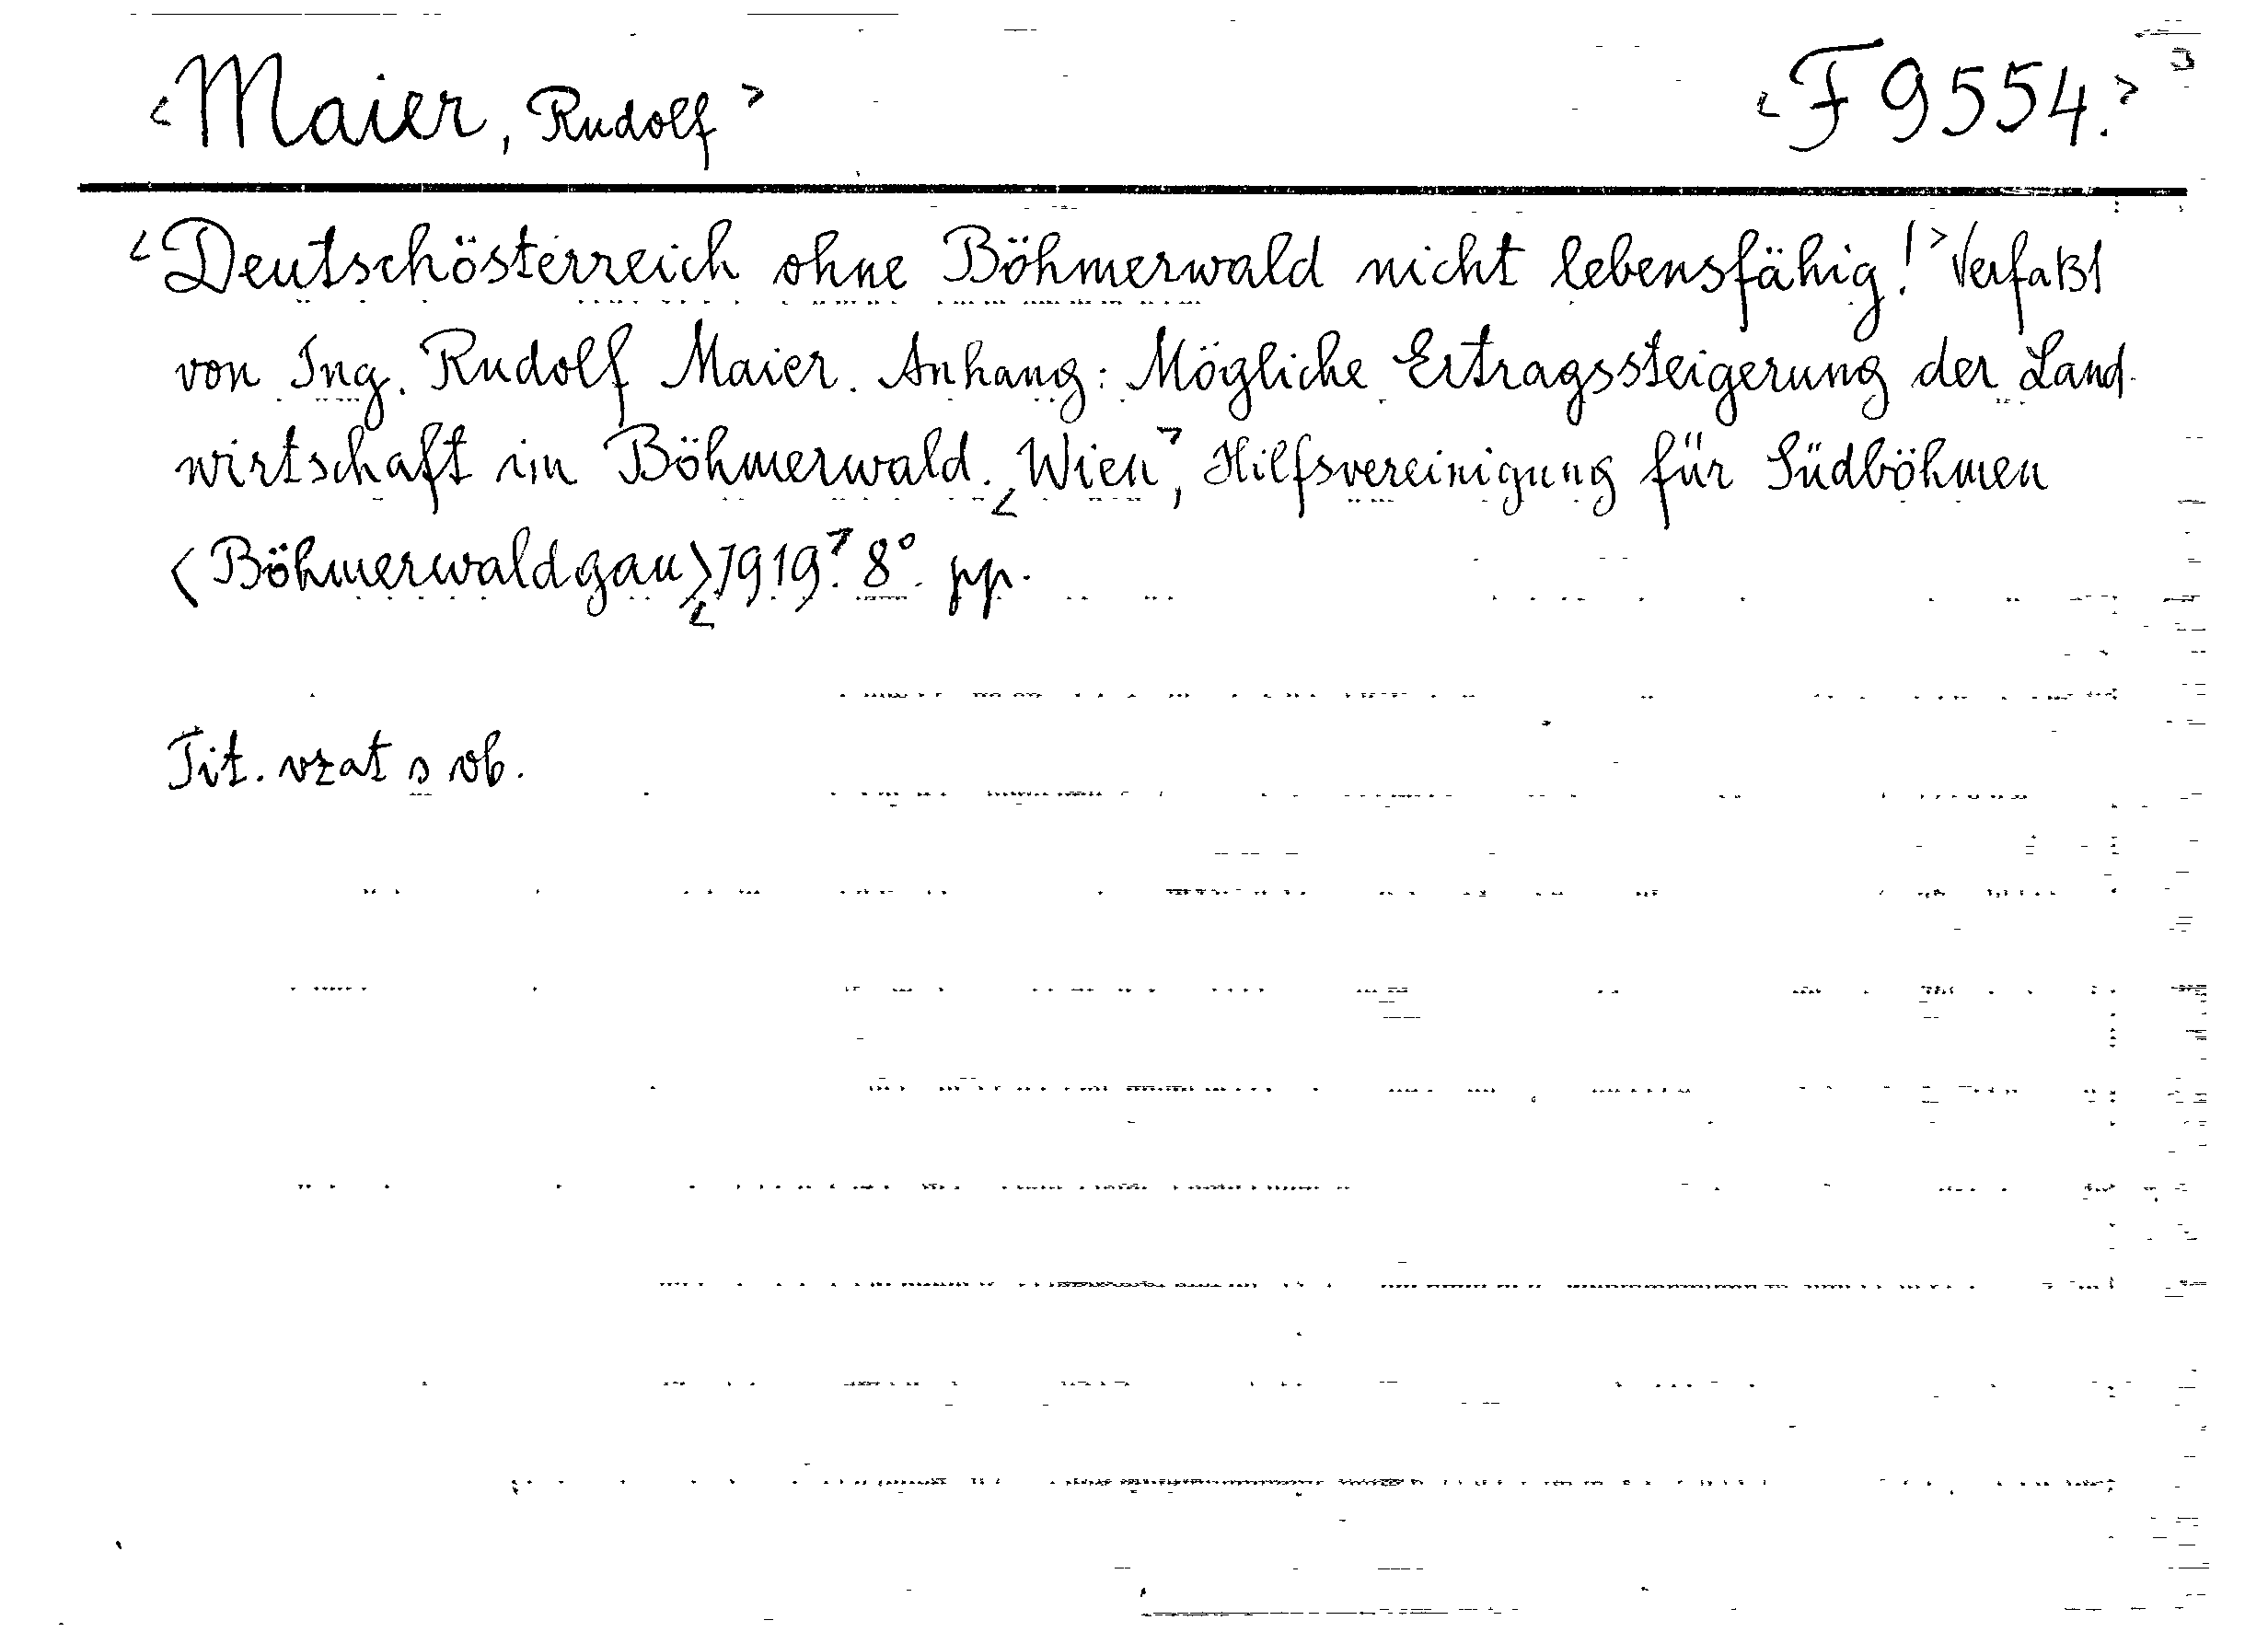 <Maier, Rudolf> <F 9554.>
<Deutschösterreich ohne Böhmerwald nicht lebensfähig!> Verfaßt
von Ing. Rudolf Maier. Anhang: Mögliche Ertragssteigerung der Land-
wirtschaft im Böhmerwald. <Wien>, Hilfsvereinigung für Südböhmen
(Böhmerwaldgau) <1919>. 8°. pp.
Tit. vzat s ob.